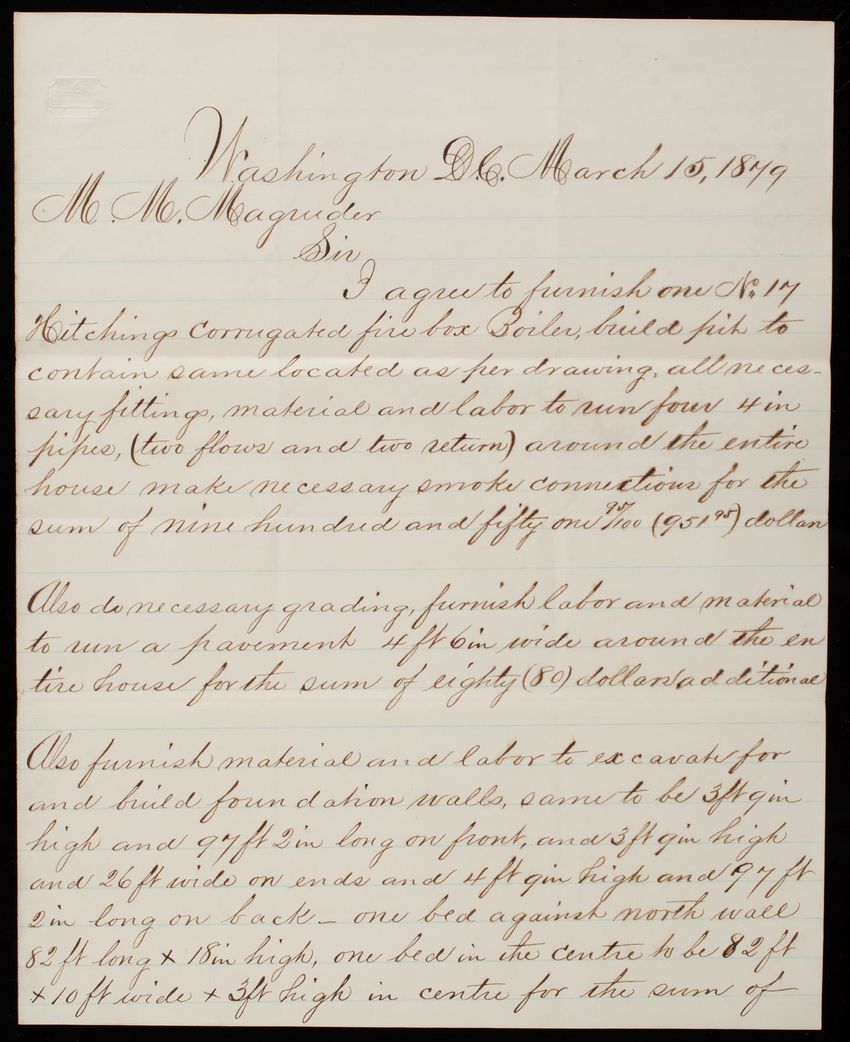 Washington D.C. March 15, 1879
M. M. Magruder
Sir
I agree to furnish one No. 17
Hitchings corrugated fire box Boiler, build pit to
contain same located as per drawing, all neces-
sary fittings, material and labor to run four 4 in
pipes, (two flows and two return) around the entire
house make necessary smoke connections for the
sum of nine hundred and fifty one 95/100 (951 95) dollars
Also do necessary grading, furnish labor and material
to run a pavement 4 ft 6 in wide around the en
tire house for the sum of eighty (80) dollars additional
Also furnish material and labor to excavate for
and build foundation walls, same to be 3 ft 9 in
high and 97 ft 2 in long on front, and 3 ft 9 in high
and 26 ft wide on ends and 4 ft 9 in high and 97 ft
2 in long on back – one bed against north wall
82 ft long x 18 in high, one bed in the centre to be 82 ft
x 10 ft wide x 3 ft high in centre for the sum of